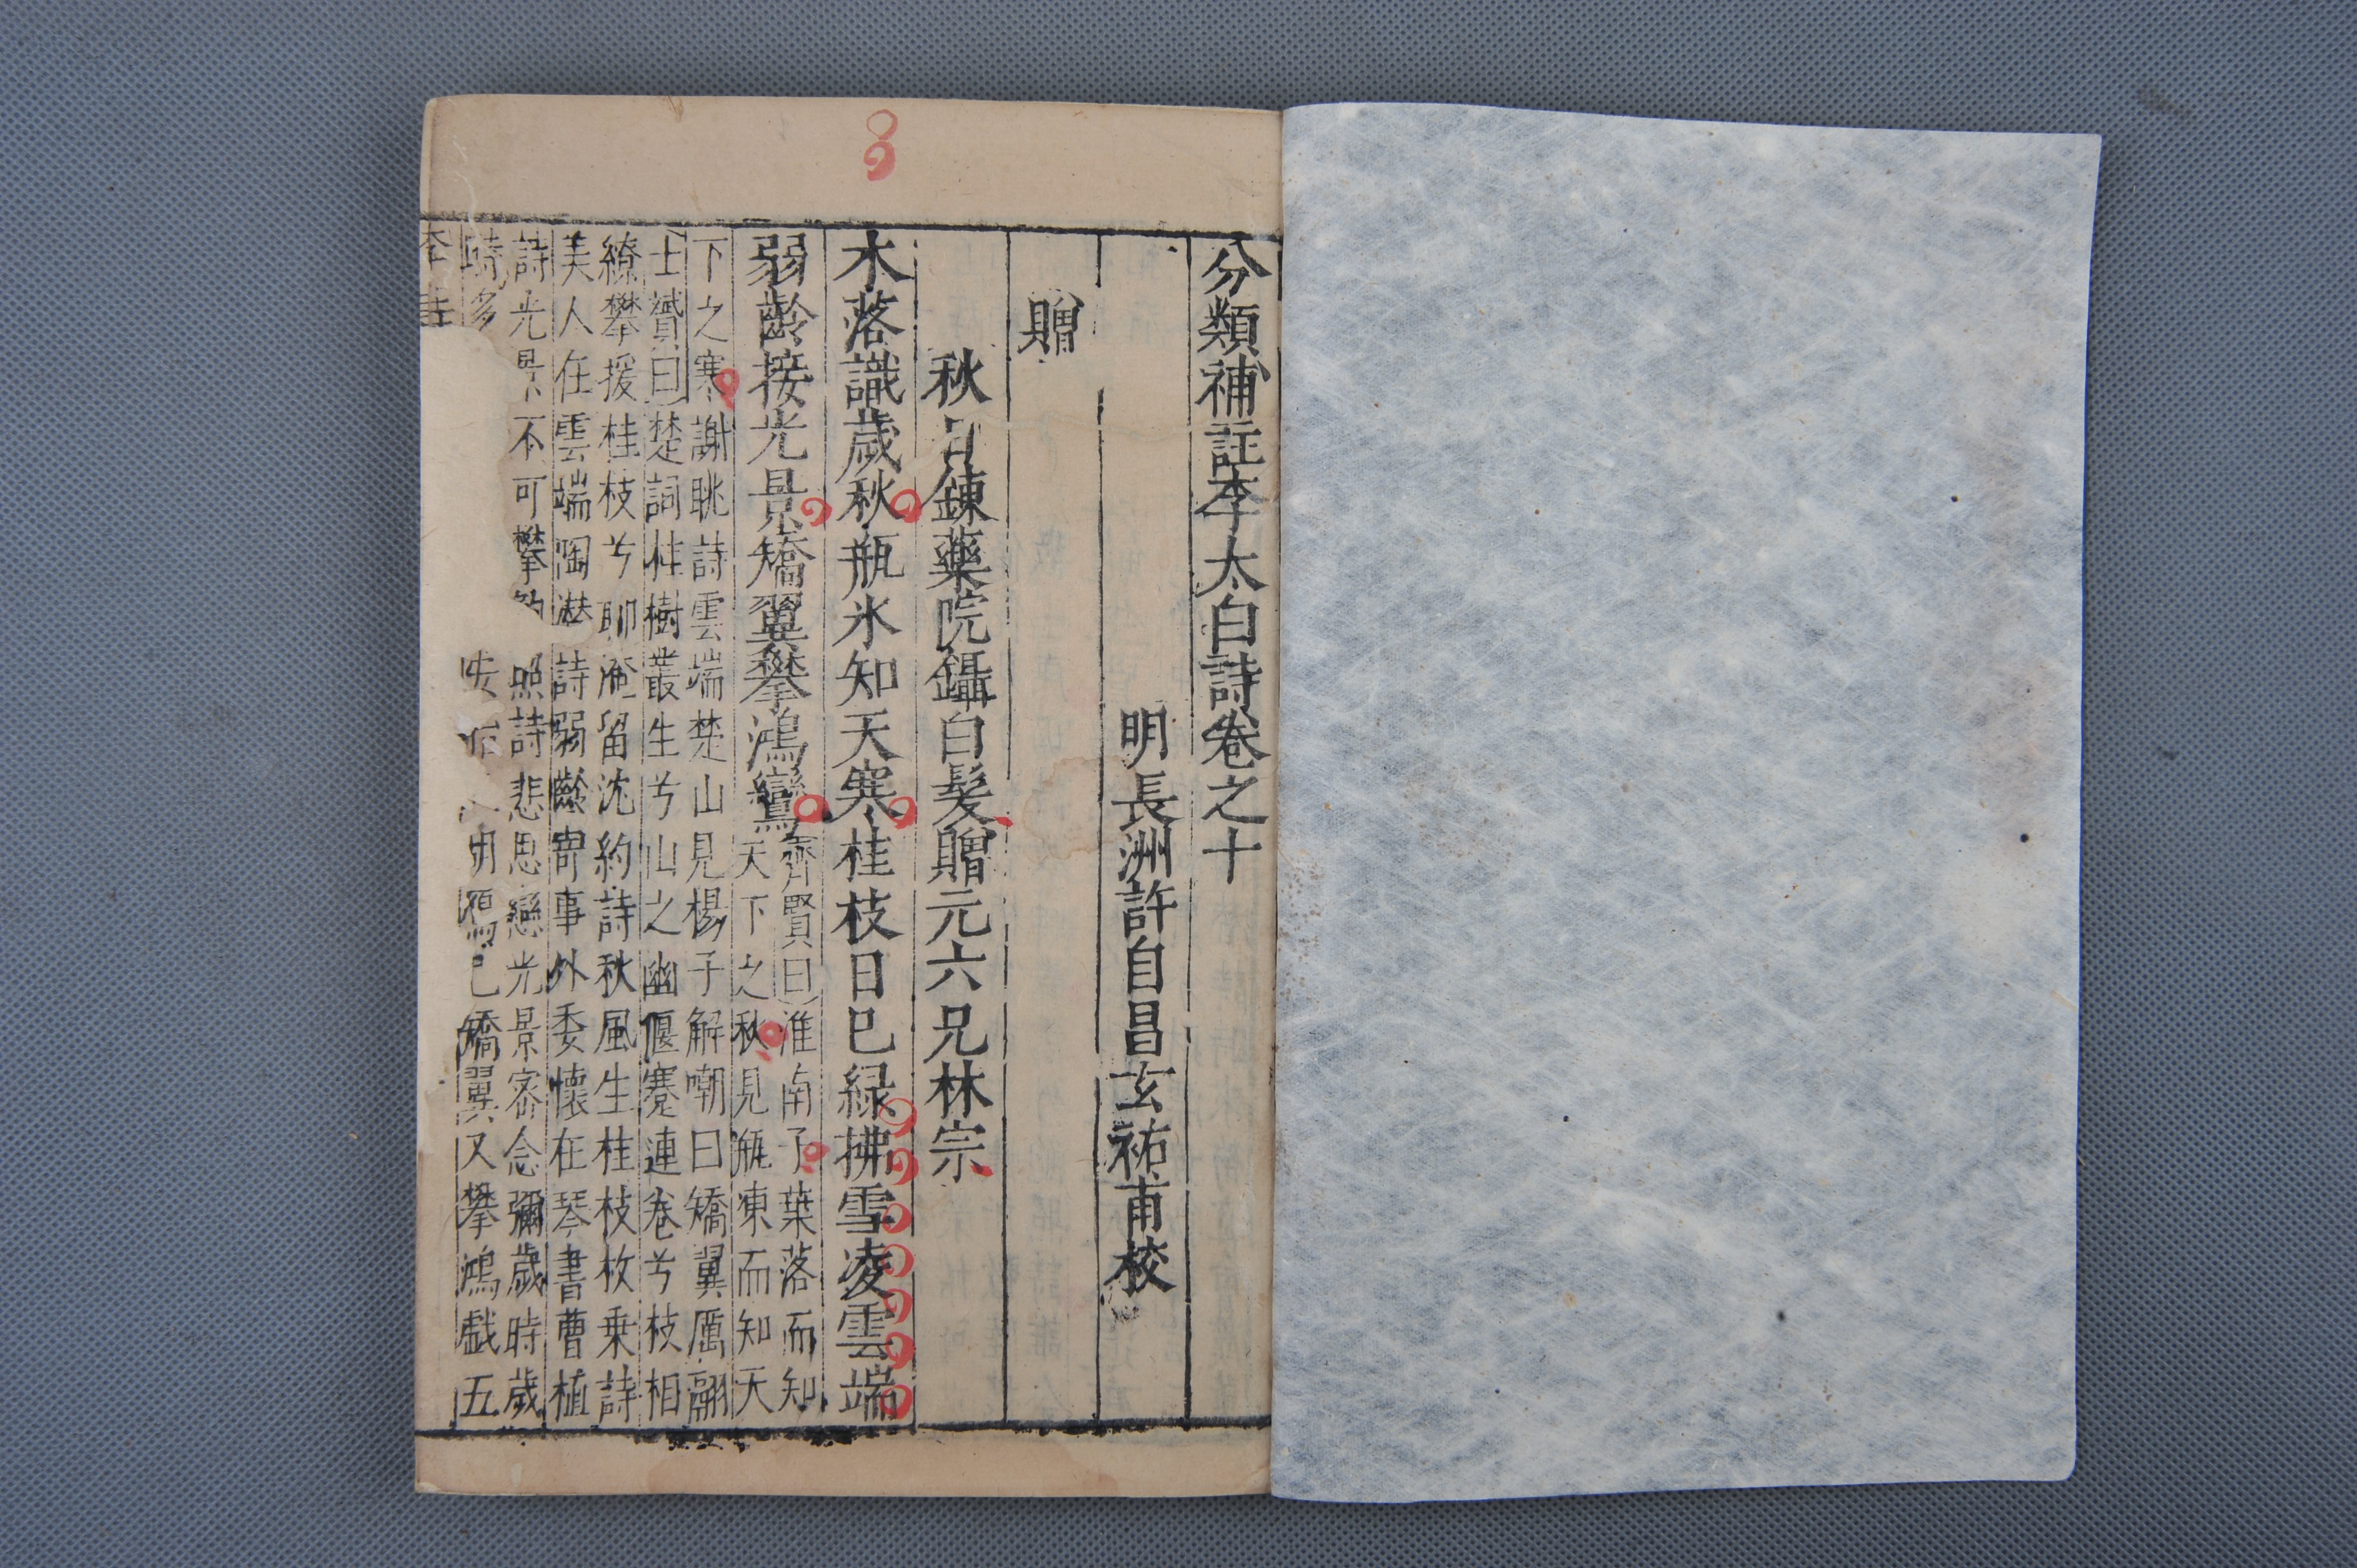 分類補註李太白詩卷之十
明長洲許自昌玄祐甫校
贈
秋日鍊藥院鑷白髮贈元六兄林宗
木落識歲秋瓶氷知天寒桂枝日已綠拂雪凌雲端
弱齡接光景矯翼攀鴻鸞
齊賢曰淮南子葉落而知
天下之秋見瓶凍而知天
下之寒謝眺詩雲端楚山見楊子解嘲曰矯翼厲翮
士贇曰楚詞桂樹叢生兮山之幽偃蹇連卷兮枝相
繚攀援桂枝兮聊淹留沈約詩秋風生桂枝枚乗詩
美人在雲端陶潛詩弱齡寄事外委懷在琴書曹植
詩光景不可攀 照詩悲思戀光景密念彌歲時歲
時多 明鴈已矯翼又攀鴻戯五
李詩